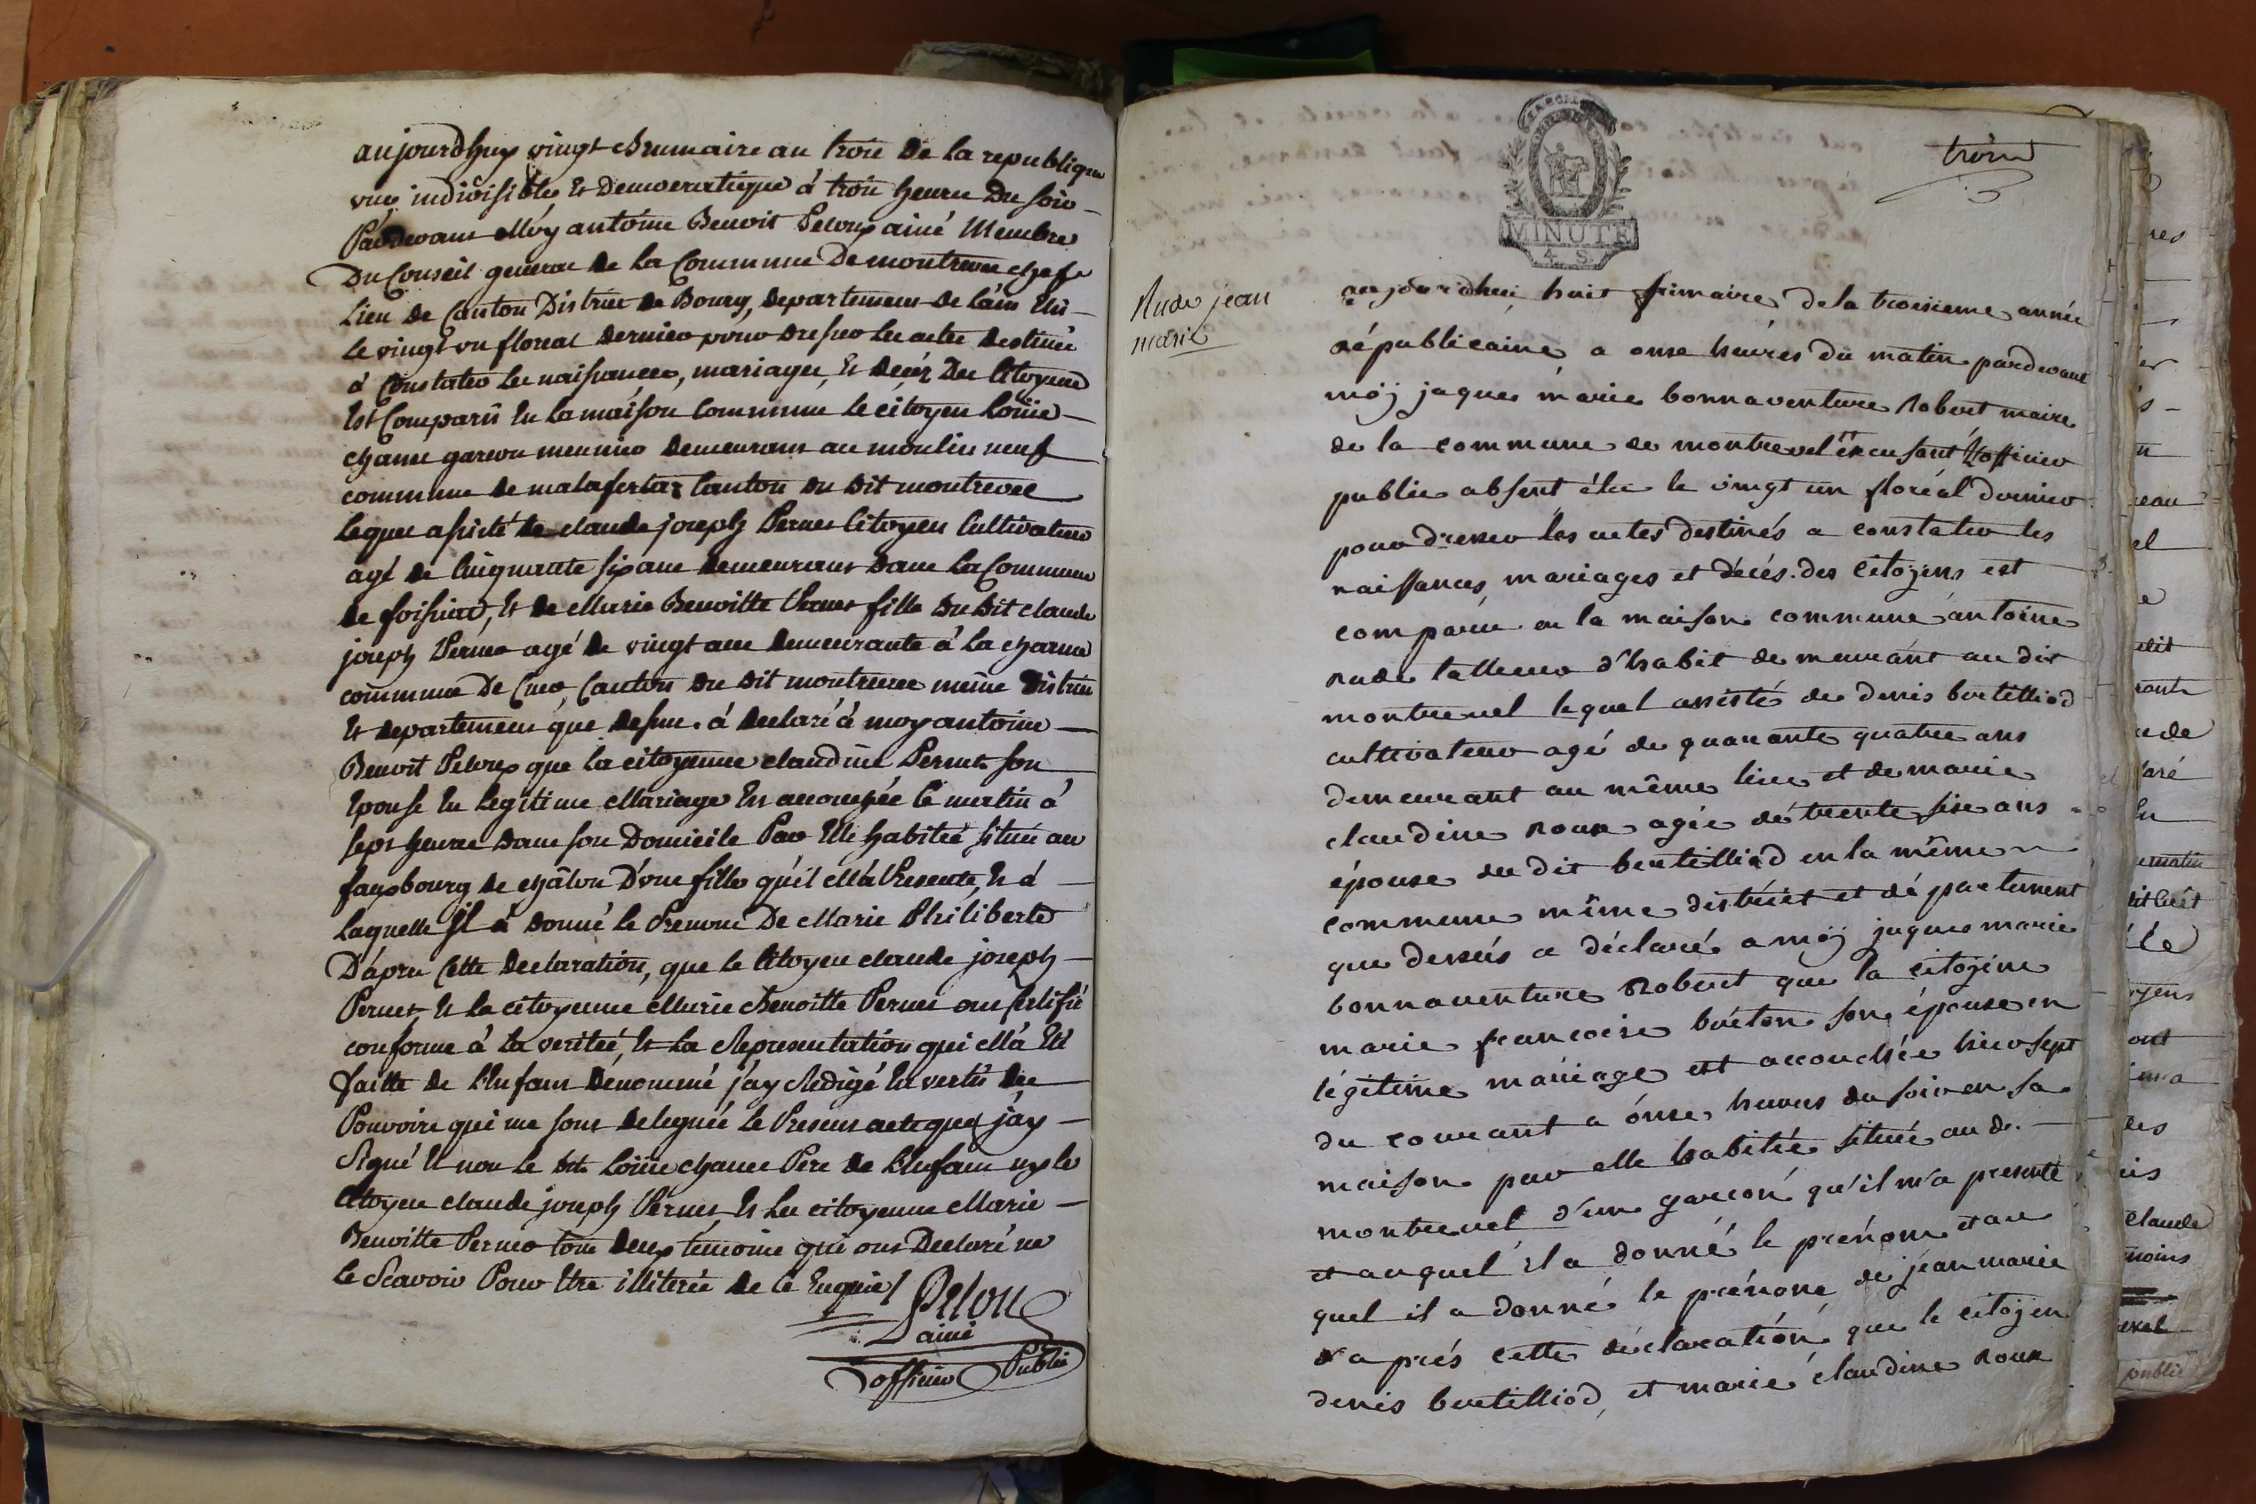 aujourdhuy vingt brumaire an trois de la republique
une indivisible et Democratique à trois heures Du soir
Pardevant Moy antoine Benoit Peloux ainé Membre
Du Conseil general de la Commune De montrevel chef
Lieu de Canton District de Bourg, departement de L'ain Elu
Le vingt un floreal dernier pour dresser les actes destinés
à Constater les naissances, mariages, et décéz Des Citoyens
Est Comparû En la maison Commune le citoyen Loüis
chanel garcon meunier demeurant au moulin neuf
commune de malafertaz Canton du dit montrevel
Lequel assisté de claude joseph Pernet Citoyen Cultivateur
agé de Cinquante six ans demeurant dans la Commune
de foissiat, Et de Marie Benoitte Pernet fille du dit claude
joseph Pernet agé de vingt ans demeurante à la charme
commune De Curt Canton du dit montrevel même District
Et departement que dessus. à declaré à moy antoine
Benoit Peloux que la citoyenne claudine Pernet son
Epouse En legitime Mariage Est accouchée Ce matin à
sept heures dans son Domicile Par Elle habitée située au
fauxbourg de châlon D'une fille qu'il m'a Presenté, Et à
laquelle Il à donné le Prenom De Marie Philiberte
D'aprés Cette declaration, que le Citoyen claude joseph
Pernet, Et la citoyenne Marie Benoitte Pernet ont Certifié
conforme à la verité, Et la Representation qui m'a Eté
faitte de L'enfant dénommé j'ay Redigé En vertû des
Pouvoirs qui me sont delegués le Present acte que j'ay
Signé Et non le dit Loüis chanel Pere de L'Enfant ny le
Citoyen claude joseph Pernet Et la citoyenne Marie
Benoitte Pernet tous deux témoins qui ont Declaré ne
le Scavoir Pour Etre illiterés de ce Enquis
Peloux
ainé
officier Public
trois
3
MINUTE
4. S.
Rude jean
marie
aujourdhui huit frimaire de la troisieme année
républicaine a onse heures du matin pardevant
moj jaques marie bonnaventure Robert maire
de la commune de montrevel excusant L'officier
public absent élu le vingt un floréal dernier
pour dresser les actes destinés a constater les
naissances, mariages et décés des Citojens est
comparu en la maison commune antoine
rude tallieur d'habit demeurant au dit
montrevel lequel assisté de denis bertilliod
cultivateur agé de quarante quatre ans
demeurant au même lieu et de marie
claudine roux agée de trente six ans
épouse du dit bertilliod en la même
commune même district et département
que dessus a déclaré a moj jaques marie
bonnaventure Robert que la citojene
marie francoise breton son épouse en
légitime mariage est accouchée hier sept
du courant a onse heures du soir en sa
maison par elle habitée située au d.
montrevel d'un garcon qu'il m'a presenté
et auquel il a donné le prénom et au
quel il a donné le prénom de jean marie
d'aprés cette déclaration que le citojen
denis bertilliod, et marie claudine roux